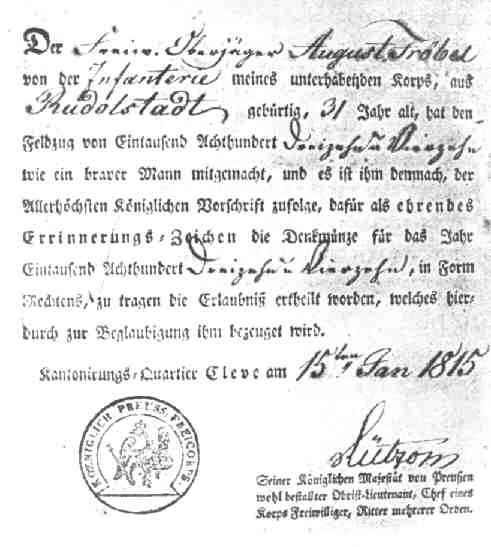 Der Freiw. Oberjäger August Fröbel
von der Infanterie meines unterhabenden Korps, aus
Rudolstadt, gebürtig, 31 Jahr alt, hat den
Feldzug von Eintausend Achthundert Dreizehn u Vierzehn
wie ein braver Mann mitgemacht, und es ist ihm demnach, der
Allerhöchsten Königlichen Vorschrift zufolge, dafür als ehrendes
Errinnerungs-Zeichen die Denkmünze für das Jahr
Eintausend Achthundert Dreizehn u Vierzehn, in Form
Rechtens, zu tragen die Erlaubniß ertheilt worden, welches hier-
durch zur Beglaubigung ihm bezeuget wird.
Kantonirungs-Quartier Cleve am 15ten Jan 1815
KOENIGLICH PREUSS. FREICORPS.
Lützow
Seiner Königlichen Majestät von Preußen
wohl bestallter Obrist-Lieutenant, Chef eines
Korps Freiwilliger, Ritter mehrerer Orden.